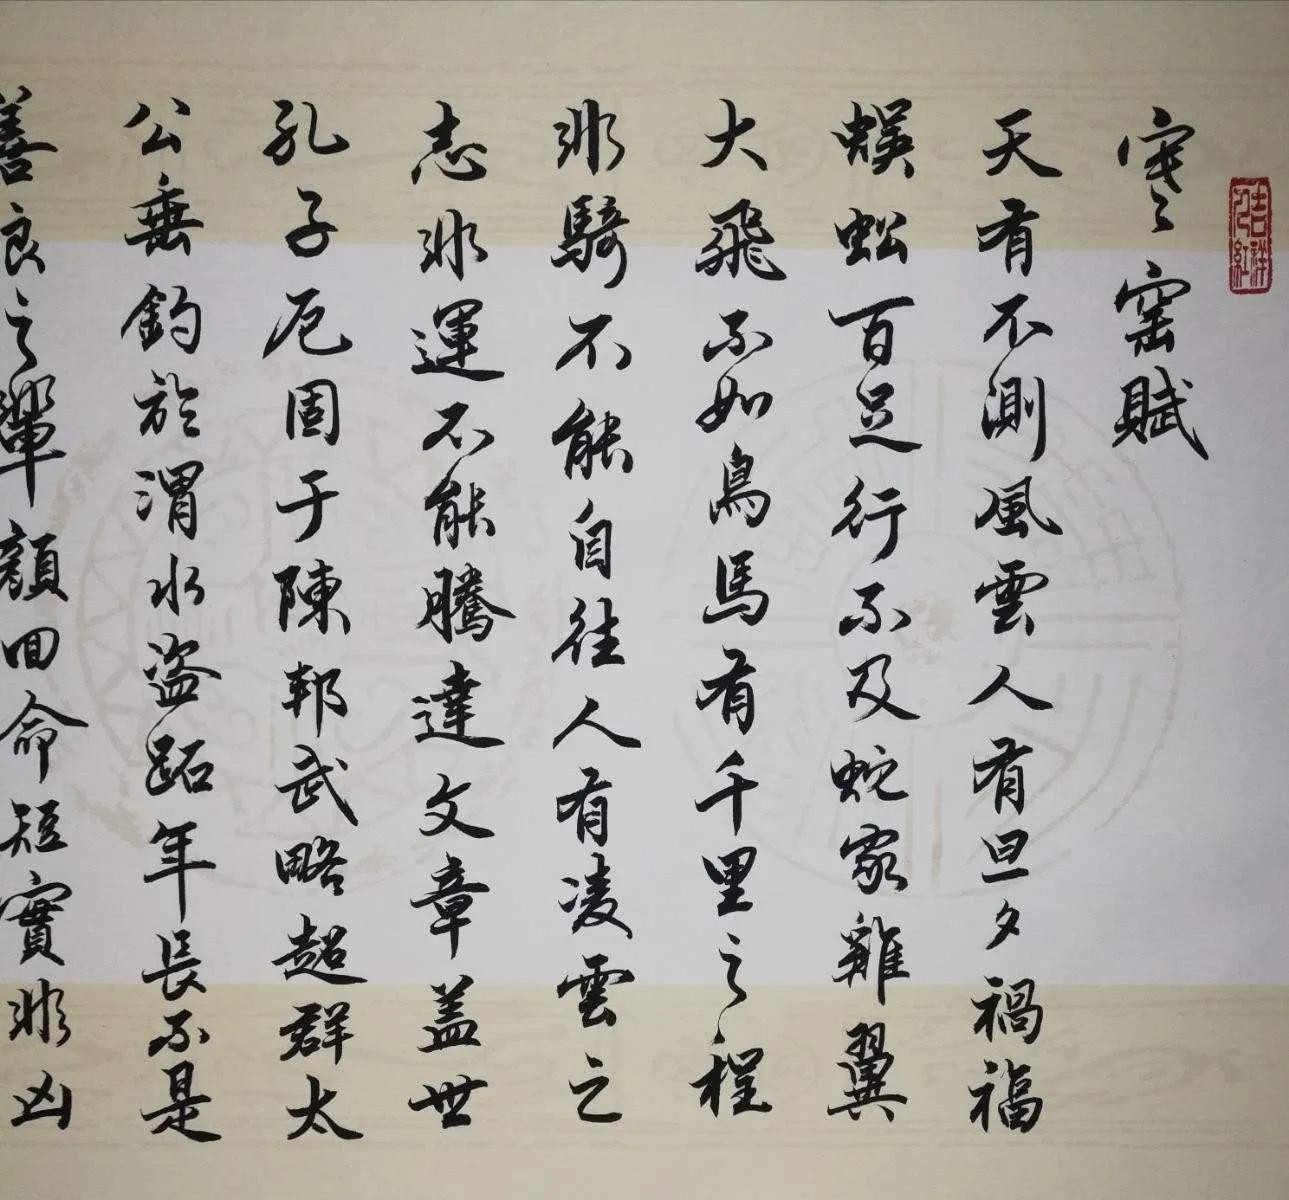 吉祥
寒窑賦
天有不測風雲人有旦夕禍福
蜈蚣百足行不及蛇家雞翼
大飛不如鳥馬有千里之程
非騎不能自往人有凌雲之
志非運不能騰達文章盖世
孔子厄固于陳邦武略超群太
公垂釣於渭水盗跖年長不是
善良之輩顏回命短實非凶